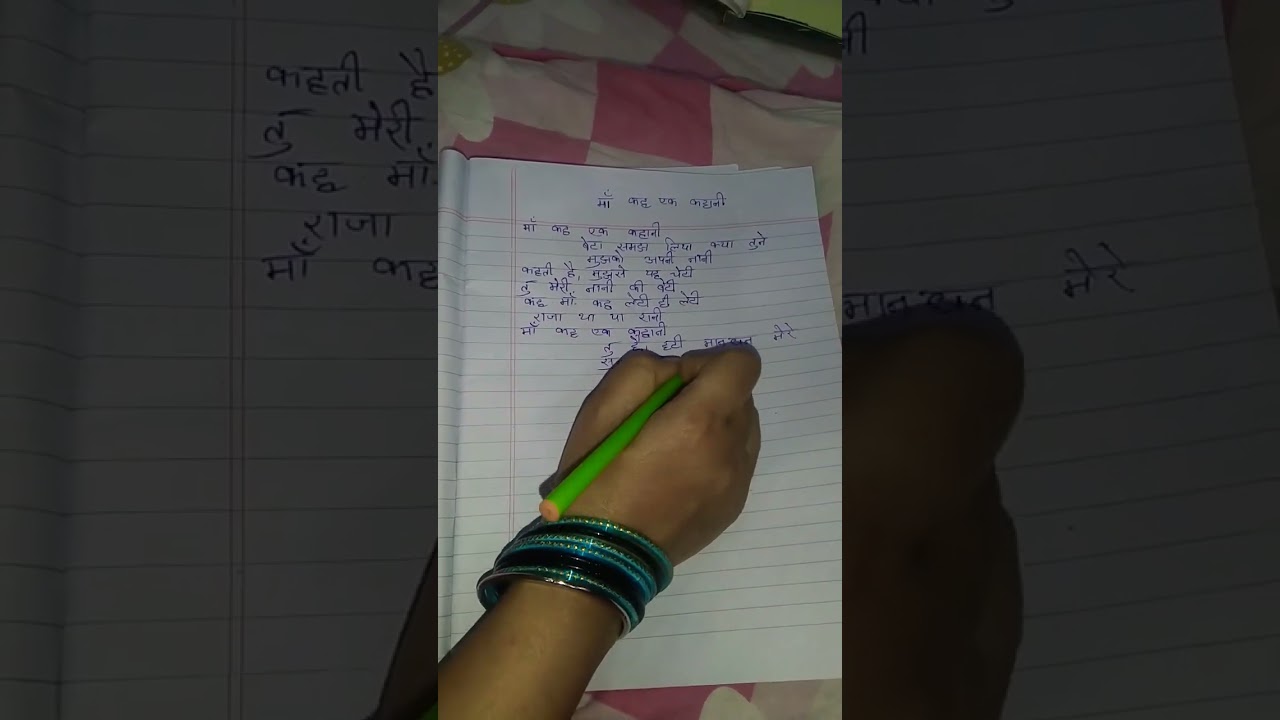 माँ कह एक कहानी
माँ कह एक कहानी
बेटा समझ लिया क्या तुने
मुझको अपनी नानी
कहती है, मुझसे यह चेटी
तु मेरी नानी की बेटी
कह माँ कह लेटी ही लेटी
राजा था या रानी
माँ कह एक कहानी
तु है हटी मानधन मेरे